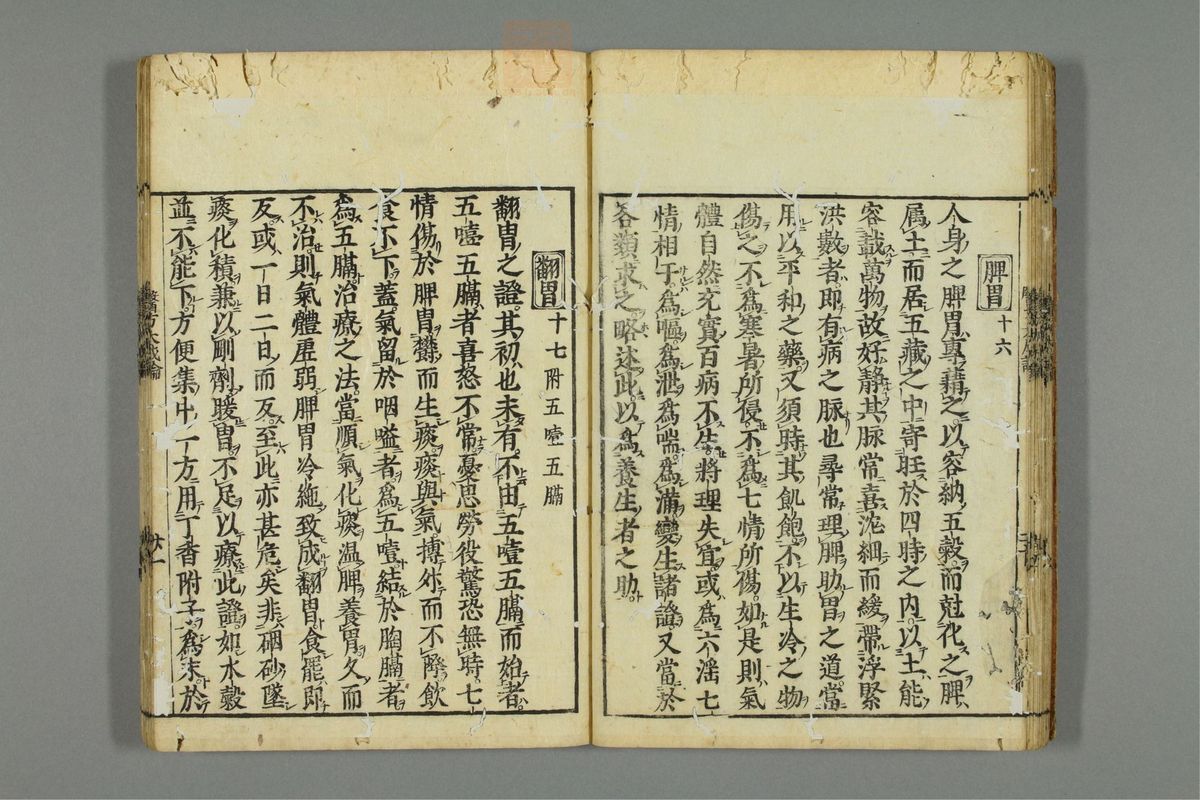 脾胃 十六
人身之脾胃專藉之以容納五穀而尅化之脾
属土而居五藏之中寄旺於四時之内以土能
容載萬物故好静其脉常喜沈細而緩帶浮緊
洪數者即有病之脉也尋常理脾助胃之道當
用以平和之藥又須時其飢飽不以生冷之物
傷之不為寒暑所侵不為七情所傷如是則氣
體自然充實百病不生將理失宜或為六淫七
情相干為嘔為泄為喘為滿變生諸證又當於
各類求之略述此以為養生者之助
翻胃 十七 附五噎五膈
翻胃之證其初也未有不由五噎五膈而始者
五噎五膈者喜怒不常憂思勞役驚恐無時七
情傷於脾胃欝而生痰痰與氣搏外而不降飲
食不下蓋氣留於咽嗌者為五噎結於胸膈者
為五膈治療之法當順氣化痰温脾養胃久而
不治則氣體虚弱脾胃冷絁致成翻胃食罷即
反或一日二日而反至此亦甚危矣非硇砂墜
痰化積兼以剛劑暖胃不足以療此證如水穀
並不能下方便集中一方用丁香附子為末於
醫方大成論
廿一